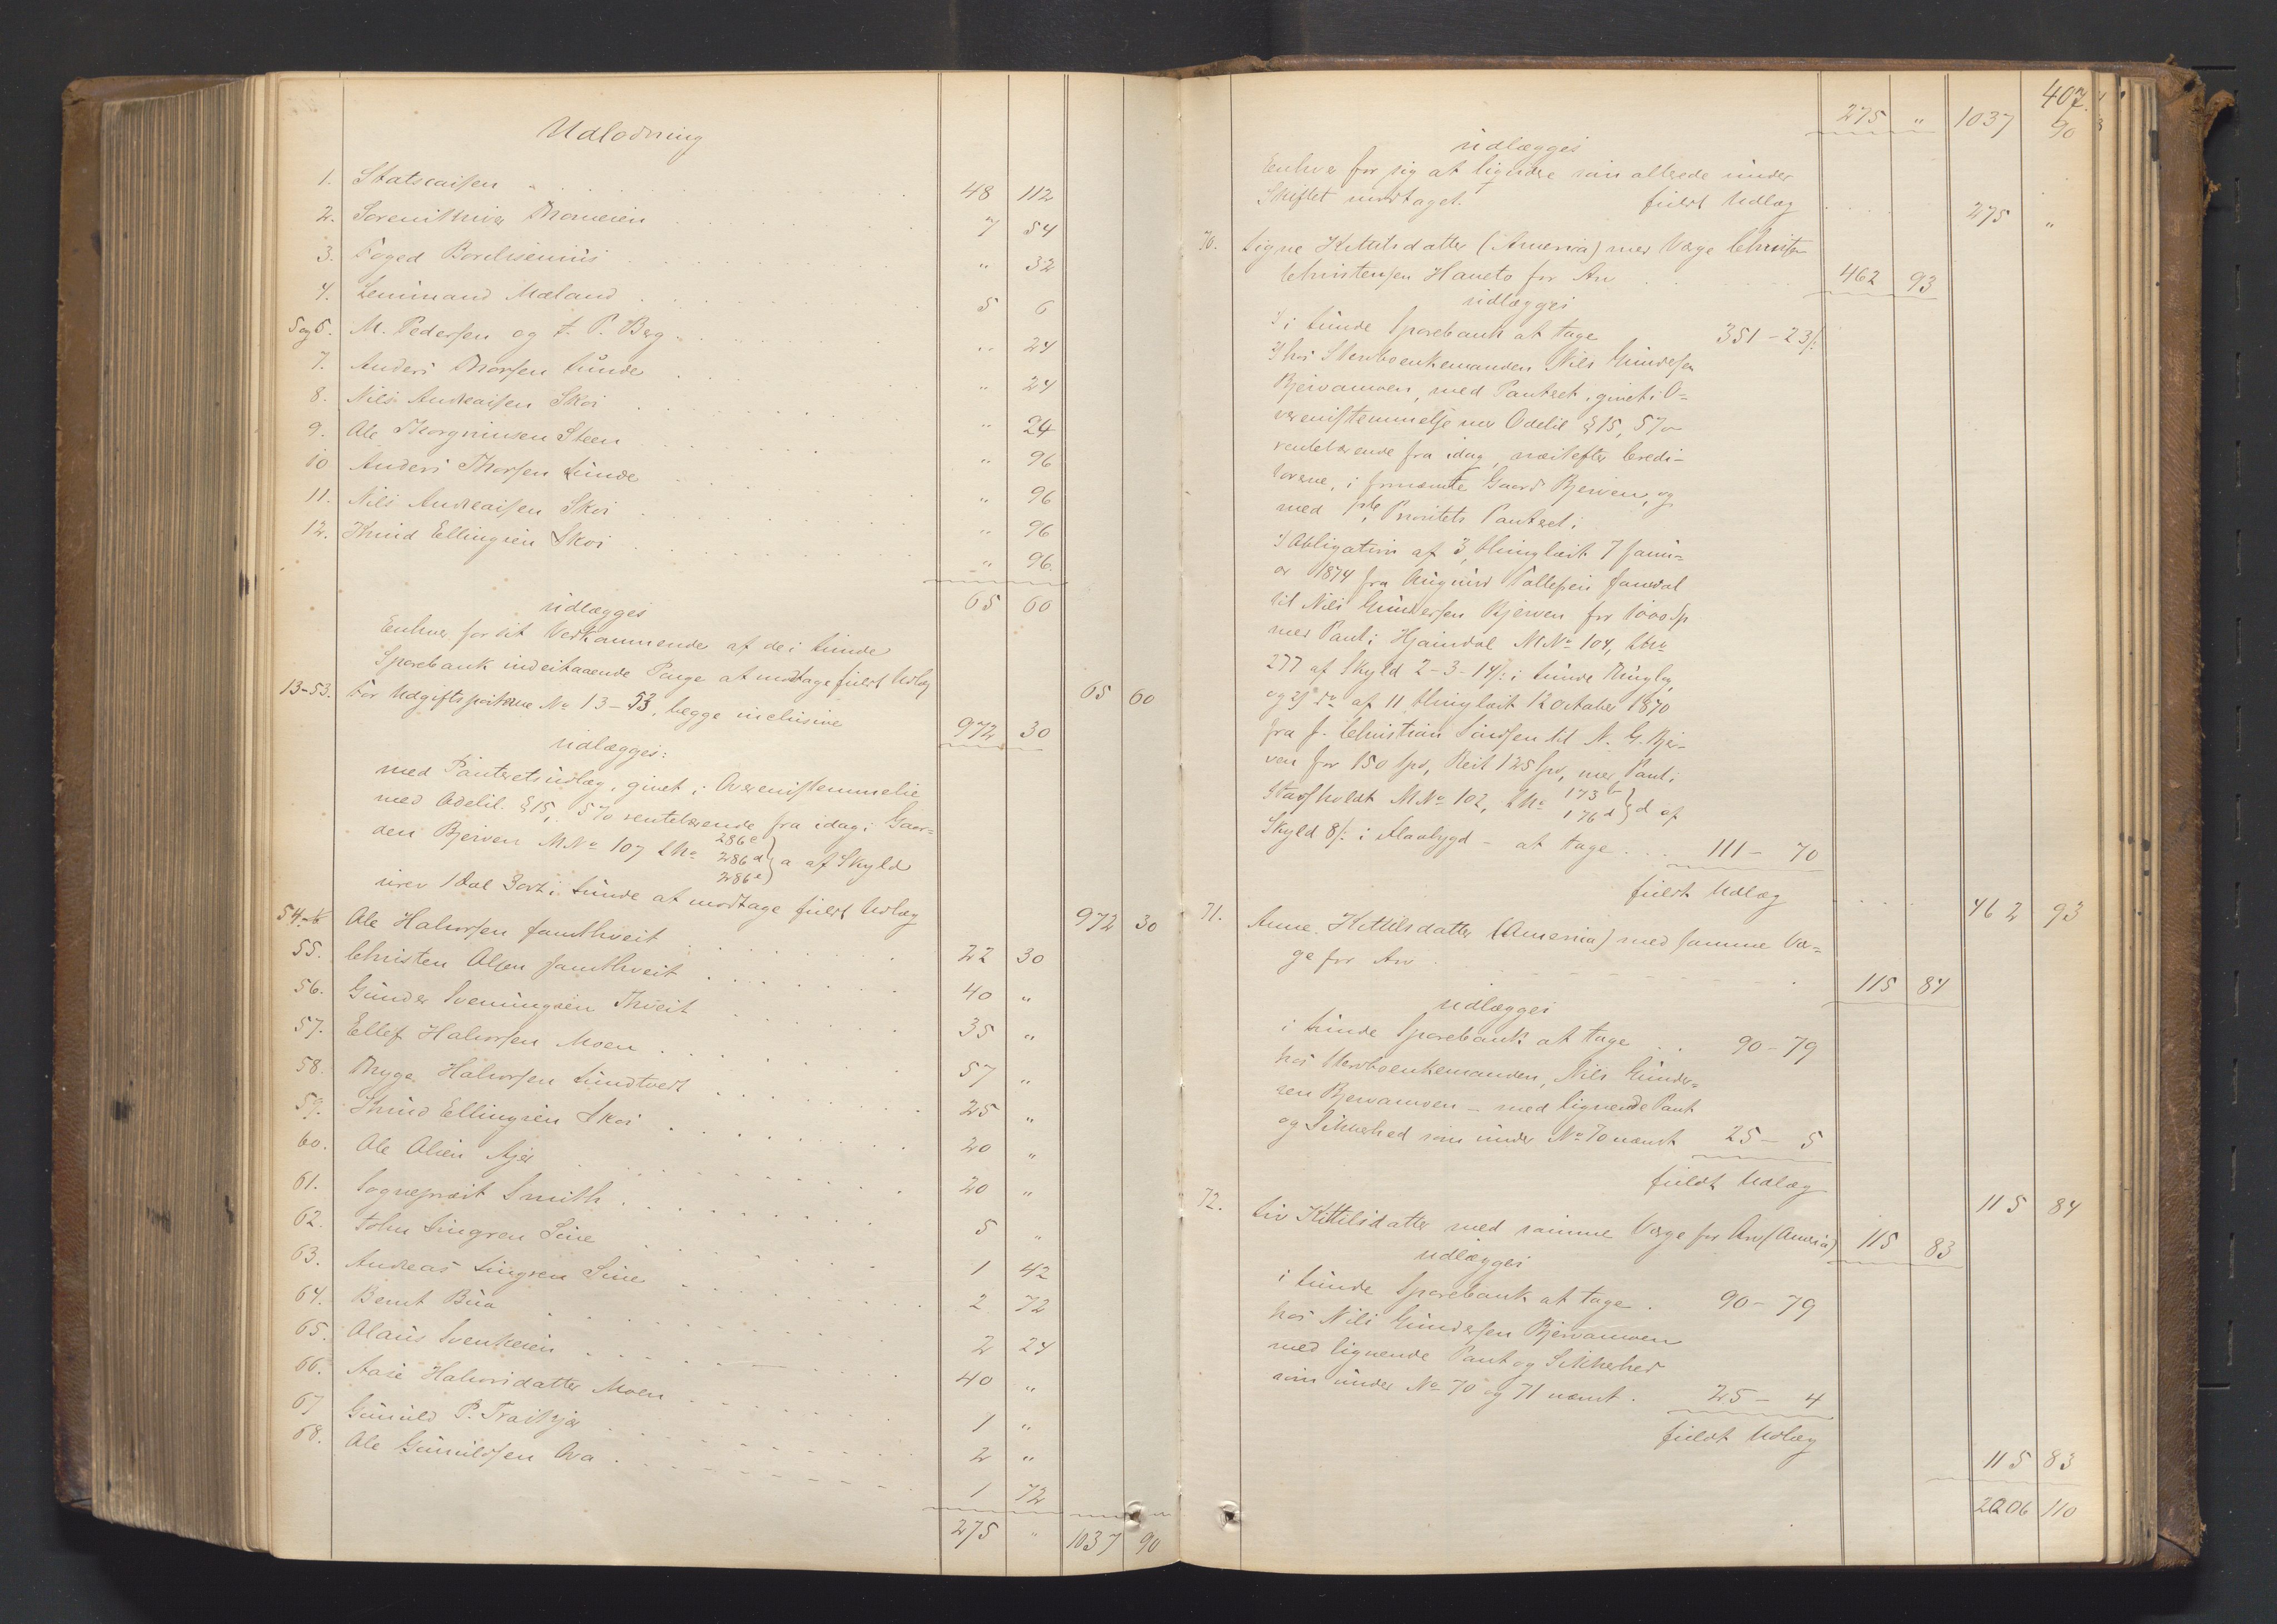 Udlodning
1. Statscassen 48 112
2. Sorenskriver Thomesen 7 54
3. Foged Borchsenius " 32
4. Lensmand Mæland 5 6
5 og 6. M. Pedersen og A. P. Berg " 24
7. Anders Thorsen Lunde " 24
8. Nils Andreassen Skoi " 24
9. Ole Thorgrimsen Steen " 96
10 Anders Thorsen Lunde " 96
11. Nils Andreassen Skoi " 96
12. Knud Ellingsen Skoi " 96.
65 60
udlægges
Enhver for sit Vedkommende af de i Lunde
Sparebank indestaaende Penge at modtage fuldt Udlæg 65 60
13-53. For Udgiftsposterne No 13-53, begge inclusive 972 30
udlægges:
med Panteretsudlæg, givet i Overensstemmelse
med Odelsl. §15, 5% rentebærende fra idag i Gaar-
den Bjerven M No 107 L No 286c 286d 286e a af Skyld
urev 1 Dal 3 ort i Lunde at modtage fuldt Udlæg 972 30
54. Ole Halvorsen Jamthveit 22 30
55. Christen Olsen Jamthveit 40 "
56. Gunder Sveinungsen Thveit 35 "
57. Ellef Halvorsen Moen 57 "
58. Thyge Halvorsen Lundtvedt 25 "
59. Knud Ellingsen Skoi 20 "
60. Ole Olsen Ajer 20 "
61. Sognepræst Smith 5 "
62. John Lingren Line 1 42
63. Andreas Lingren Line 2 72
64. Bernt Bua 2 24
65. Olaus Svenkesen 40 "
66. Aase Halvorsdatter Moen 1 "
67 Gunuld P. Traikjær 2 "
68. Ole Gunuldsen Ova 1 72
275 " 1037 90
407.
275 " 1037 90
udlægges
Enhver for sig at ligudere som allerede under
Skiftet modtaget. fuldt Udlæg 275 "
70. Signe Kittilsdatter (America) med Værge Christen
Christensen Haneto for Arv 462 93
udlægges
i Lunde Sparebank at tage 351-23ß
hos Stervboenkemanden Nils Gundersen
Bjervamoen, med Panteret, givet i O-
verensstemmelse med Odelsl. §15, 5%
rentebærende fra idag, næstefter Credi-
torerne, i fornævnte Gaard Bjerven, og
med 1ste Prioritets Panteret i
Obligation af 3, thinglæst 7 Janu-
ar 1874 fra Augund Tallefsen Jamdal
til Nils Gundersen Bjerven for 1000 Sp
med Pant i Hjamdal M No 104, L No
277 af Skyld 2-3-14ß i Lunde Thinglag,
og 2) do af 11 thinglæst 12 October 1870
fra J. Christian Knudsen til N. G. Bjer-
ven for 150 Spd, Rest 125 Spd, med Pant i
Stavsholdt M No 102, L No 173 b 176 d d af
Skyld 8ß i Flaabygd - at tage 111- 70
fuldt Udlæg 462 93
71. Anne Kittilsdatter (America) med samme Vær-
ge for Arv 115 84
udlægges
i Lunde Sparebank at tage 90-79
hos Stervboenkemanden, Nils Gunder-
sen Bjervamoen - med lignende Pant
og Sikkerhed som under No 70 nævnt 25- 5
fuldt Udlæg 115 84
72. Liv Kittilsdatter med samme Værge for Arv (America) 115 83
udlægges
i Lunde Sparebank at tage 90-79
hos Nils Gundersen Bjervamoen
med lignende Pant og Sikkerhed
som under No 70 og 71 nævnt. 25- 4
fuldt Udlæg 115 83
2006 110